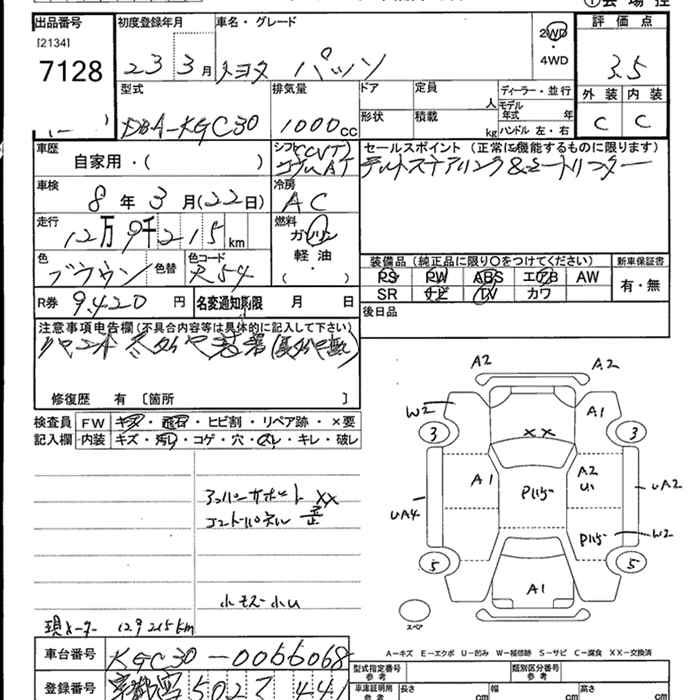 出品番号
[2134]
7128
初度登録年月
23 3月
車名・グレード
トヨタ パッソ
2WD
・
4WD
評価点
3.5
外装 内装
C C
型式
DBA-KGC30
排気量
1000cc
ドア
形状
定員
人
積載
kg
ディーラー・並行
モデル
年式 年
ハンドル 左・右
車歴
自家用・( )
シフト (CVT)
コラムAT
セールスポイント (正常に機能するものに限ります)
チルトステアリング&シートリフター
車検
8年 3月(22日)
冷房
AC
走行
12万9千215km
燃料
ガソリン
軽油・
( ・ )
色
ブラウン
色替
色コード
R54
装備品 (純正品に限り○をつけてください)
PS PW ABS エアB AW
SR ナビ TV カワ
新車保証書
有・無
R券 9,420円
名変通知期限 月 日
後日品
注意事項申告欄 (不具合内容等は具体的に記入して下さい)
修復歴 有 〔箇所 〕
検査員
記入欄
FW キズ・飛石・ヒビ割・リペア跡・×要
内装 キズ・汚れ・コゲ・穴・スレ・キレ・破レ
アッパーサポート XX
コントパネル 歪
小キズ・小U
現メーター 129215km
A2 A2
W2 A1
3 XX 3
A1 P115 A2
U1
UA4 UA2
P115 W2
5 A1 5
スペア
A-キズ E-エクボ U-凹み W-補修跡 S-サビ C-腐食 XX-交換済
車台番号 KGC30-0066068
登録番号 京都 502 て 441
型式指定番号
参考
類別区分番号
参考
車庫証明用
参考
長さ cm
幅 cm
高さ cm